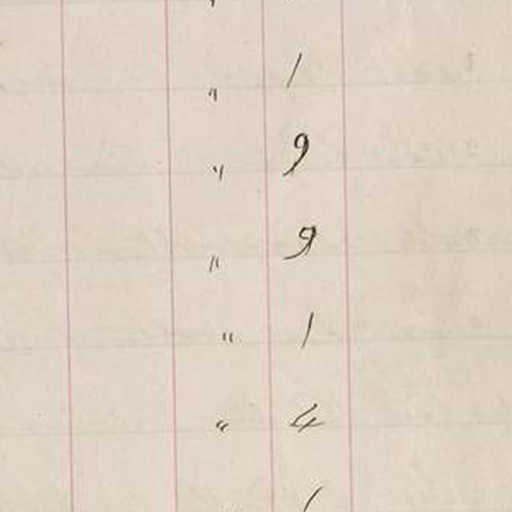 " 1
" 9
" 9
" 1
" 4